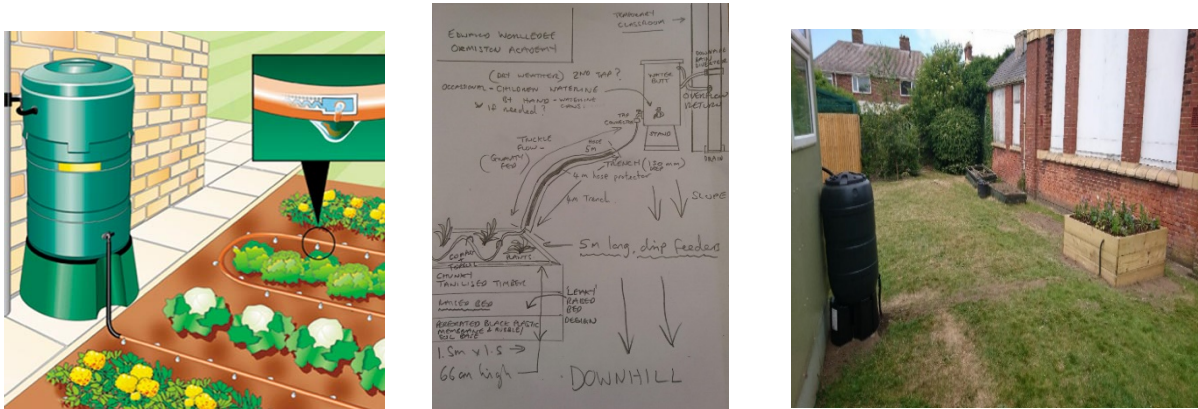 EDWARD WORLLEDGE
ORMISTON ACADEMY
TEMPORARY
CLASSROOM
(DRY WEATHER) 2ND TAP?
OCCASIONAL - CHILDREN WATERING
BY HAND - WATERING
IF NEEDED? CANS.
WATER
BUTT
DOWNPIPE
RAIN
DIVERTER
OVERFLOW
RETURN
TAP
CONNECTOR
STAND
DRAIN
TRICKLE
FLOW
(GRAVITY
FED)
HOSE
5m
TRENCH (120mm
4m hose protector
4m Trench
SLOPE
5m long, drip feeders
PLANTS
CHUNKY
TANILISED TIMBER
RAISED BED
LEAKY
RAISED
BED
DESIGN
PERFERATED BLACK PLASTIC
MEMBRANE & RUBBLE/
SOIL BASE
1.5m x 1.5
66cm high
DOWNHILL